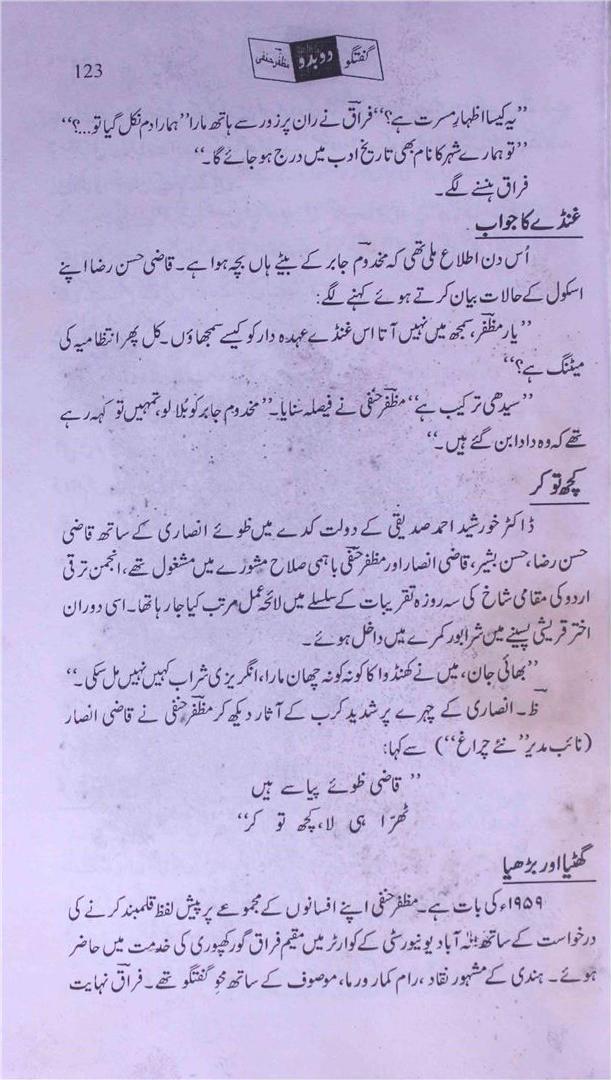 گفتگو دوبدو مظفر حنفی
123
”یہ کیسا اظہارِ مسرت ہے؟“ فراقؔ نے ران پر زور سے ہاتھ مارا ”ہمارا دم نکل گیا تو...؟“
”تو ہمارے شہر کا نام بھی تاریخ ادب میں درج ہو جائے گا۔“
فراق ہنسنے لگے۔
غنڈے کا جواب
اُس دن اطلاع ملی تھی کہ مخدومؔ جابر کے بیٹے ہاں بچہ ہوا ہے۔ قاضی حسن رضا اپنے
اسکول کے حالات بیان کرتے ہوئے کہنے لگے:
”یار مظفرؔ، سمجھ میں نہیں آتا اس غنڈے عہدہ دار کو کیسے سمجھاؤں۔ کل پھر انتظامیہ کی
میٹنگ ہے؟“
”سیدھی ترکیب ہے“ مظفرؔ حنفی نے فیصلہ سنایا۔ ”مخدوم جابر کو بُلا لو، تمہیں تو کہہ رہے
تھے کہ وہ دادا بن گئے ہیں۔“
کچھ تو کر
ڈاکٹر خورشید احمد صدیقی کے دولت کدے میں ظوئے انصاری کے ساتھ قاضی
حسن رضا، حسن بشیر، قاضی انصار اور مظفر حنفیؔ باہمی صلاح مشورے میں مشغول تھے، انجمن ترقی
اردو کی مقامی شاخ کی سہ روزہ تقریبات کے سلسلے میں لائحہ عمل مرتب کیا جا رہا تھا۔ اسی دوران
اختر قریشی پسینے میں شرابور کمرے میں داخل ہوئے۔
”بھائی جان، میں نے کھنڈوا کا کونہ کونہ چھان مارا، انگریزی شراب کہیں نہیں مل سکی۔“
ظؔ۔ انصاری کے چہرے پر شدید کرب کے آثار دیکھ کر مظفرؔ حنفی نے قاضی انصار
(نائب مدیر ”نئے چراغ“) سے کہا:
”قاضی ظوئے پیاسے ہیں
ٹھرّا ہی لا، کچھ تو کر“
گھٹیا اور بڑھیا
۱۹۵۹ء کی بات ہے۔ مظفر حنفی اپنے افسانوں کے مجموعے پر پیش لفظ قلمبند کرنے کی
درخواست کے ساتھ الٰہ آباد یونیورسٹی کے کوارٹر میں مقیم فراق گورکھپوری کی خدمت میں حاضر
ہوئے۔ ہندی کے مشہور نقاد، رام کمار ورما، موصوف کے ساتھ محوِ گفتگو تھے۔ فراقؔ نہایت